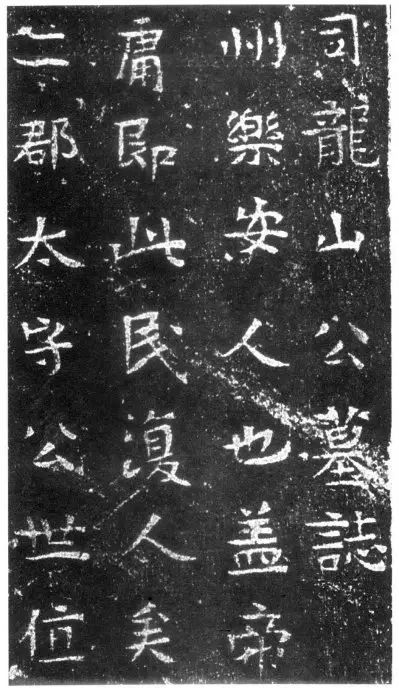 司龍山公墓誌
州樂安人也盖帝
庸即此民復人矣
二郡太守公世